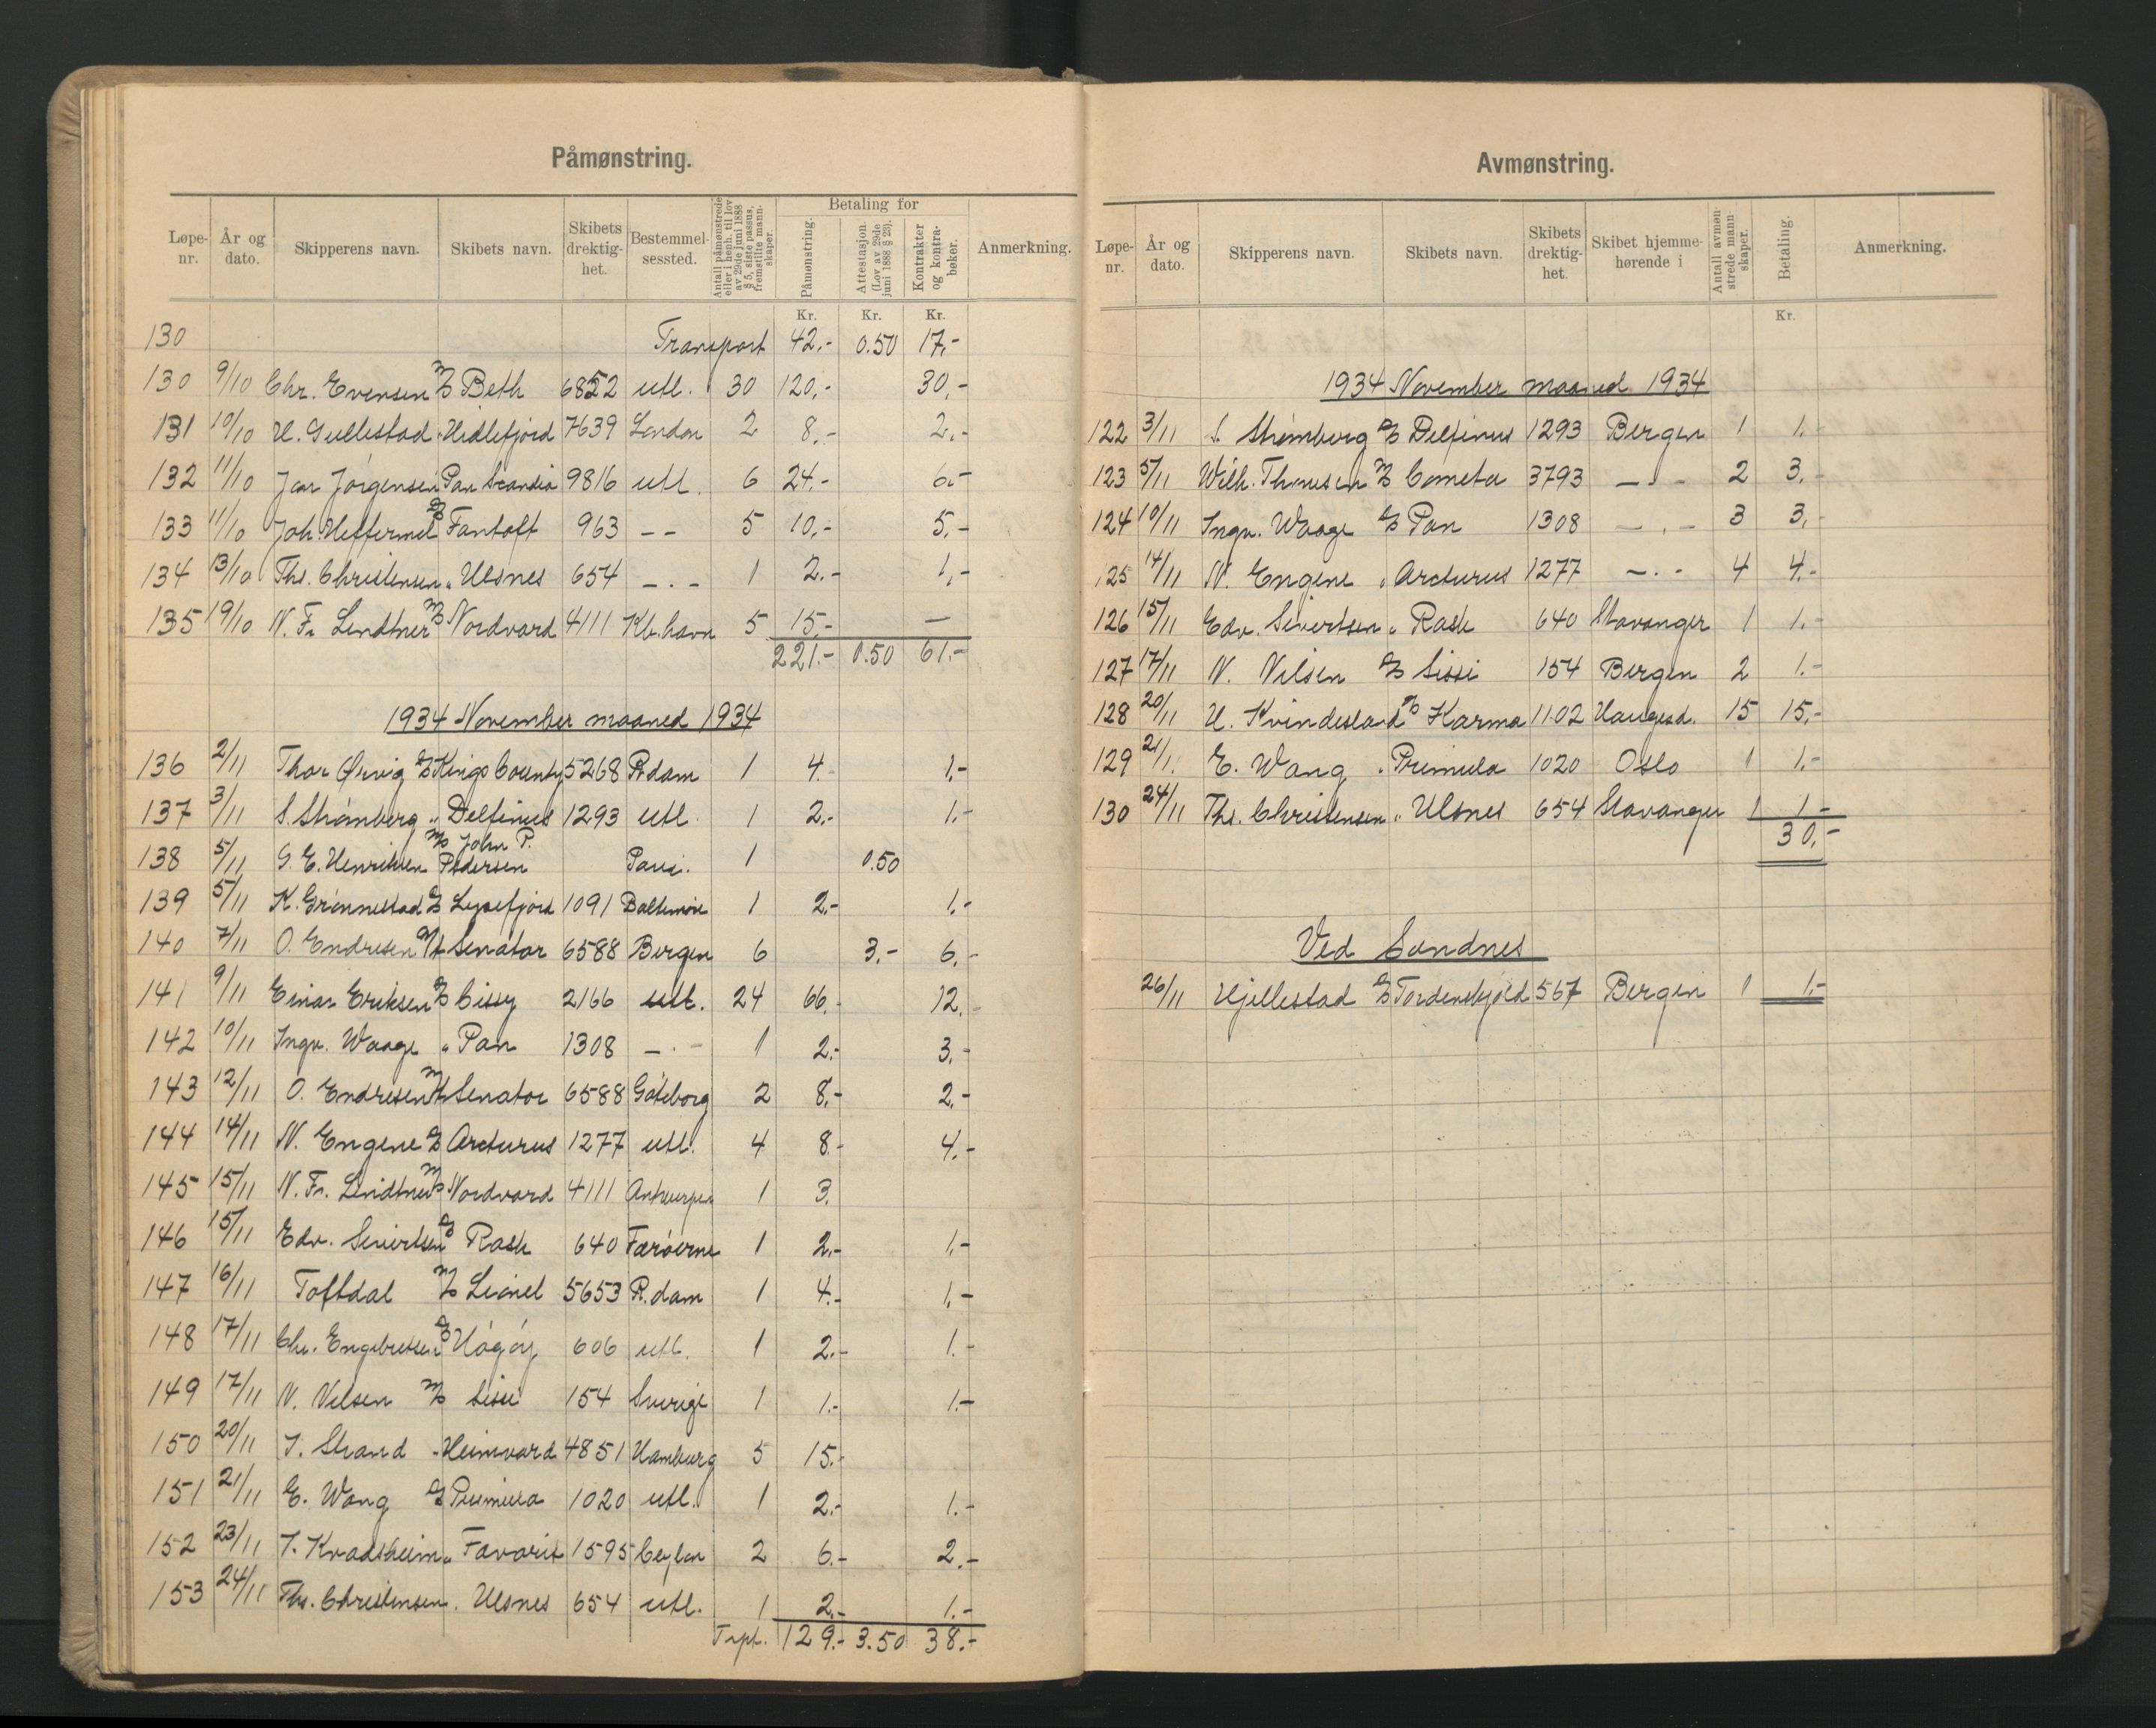 Påmønstring.
Løpe-nr. År og dato. Skipperens navn. Skibets navn. Skibets drektig-het. Bestemmel-sessted. Antall påmønstrede eller i henh. til lov av 29de juni 1888 § 5, siste passus, fremstillte mann-skaper. Betaling for Påmønstring. Attestasjon. (Lov av 29de juni 1888 § 23). Kontrakter og kontra-bøker. Anmerkning.
Kr. Kr. Kr.
130 Transport 42.- 0.50 17,-
130 9/10 Chr. Evensen M/S Beth 6852 utl. 30 120,- 30,-
131 10/10 H. Gullestad " Hidlefjord 7639 London 2 8,- 2,-
132 11/10 Jan Jörgensen Pan Scandia 9816 utl. 6 24.- 6.-
133 11/10 Joh. Heffermel D/S Fantoft 963 -- 5 10,- 5,-
134 13/10 Ths. Christensen " Ulsnes 654 -.- 1 2.- 1,-
135 19/10 N. Fr. Lindtner M/S Nordvard 4111 Kb.havn 5 15.- —
221.- 0.50 61.-
1934 November maaned 1934
136 2/11 Thor Ørvig D/S Kings County 5268 R.dam 1 4.- 1,-
137 3/11 S. Strømberg " Delfinus 1293 utl. 1 2.- 1.-
138 5/11 G. E. Henriksen M/S John P. Pedersen Paui. 1 0.50
139 5/11 K. Grønnestad D/S Lysefjord 1091 Baltimore 1 2.- 1.-
140 7/11 O. Endresen M/t Senator 6588 Bergen 6 3.- 6.-
141 9/11 Einar Eriksen D/S Cissy 2166 utl. 24 66.- 12.-
142 10/11 Ingv. Waage " Pan 1308 -.- 1 2.- 3.-
143 12/11 O. Endresen M/t Senator 6588 Göteborg 2 8.- 2.-
144 14/11 N. Engene D/S Arcturus 1277 utl. 4 8.- 4.-
145 15/11 N. Fr. Lindtner M/S Nordvard 4111 Antwerpen 1 3.
146 15/11 Edv. Sivertsen D/S Rask 640 Færöerne 1 2.- 1.-
147 16/11 Toftdal M/S Lionel 5653 R.dam 1 4.- 1.-
148 17/11 Chr. Engebretsen D/S Högöy 606 utl. 1 2.- 1.-
149 17/11 N. Nilsen M/S Sissi 154 Sverige 1 1.- 1.-
150 20/11 T. Strand " Heimvard 4851 Hamburg 5 15.-
151 21/11 E. Wang D/S Primula 1020 utl. 1 2.- 1.-
152 23/11 T. Kvadsheim " Favorit 1595 Ceylon 2 6.- 2.-
153 24/11 Ths. Christensen " Ulsnes 654 utl. 1 2.- 1.-
Trpt. 129.- 3.50 38.-
Avmønstring.
Løpe-nr. År og dato. Skipperens navn. Skibets navn. Skibets drektig-het. Skibet hjemme-hørende i Antall avmøn-strede mann-skaper. Betaling. Anmerkning.
Kr.
1934 November maaned 1934
122 3/11 S. Strømberg D/S Delfinus 1293 Bergen 1 1.-
123 5/11 Wilh. Thomesen M/S Cometa 3793 -.- 2 3.-
124 10/11 Ingv. Waage D/S Pan 1308 -.- 3 3,-
125 14/11 N. Engene " Arcturus 1277 -.- 4 4.-
126 15/11 Edv. Sivertsen " Rask 640 Stavanger 1 1.-
127 17/11 N. Nilsen D/S Sissi 154 Bergen 2 1.-
128 20/11 H. Kvindesland D/S Karma 1102 Haugesd. 15 15,-
129 21/11 E. Wang " Primula 1020 Oslo 1 1.-
130 24/11 Ths. Christensen " Ulsnes 654 Stavanger 1 1.-
30.-
Ved Sandnes
26/11 Hjellestad D/S Tordenskjold 567 Bergen 1 1.-